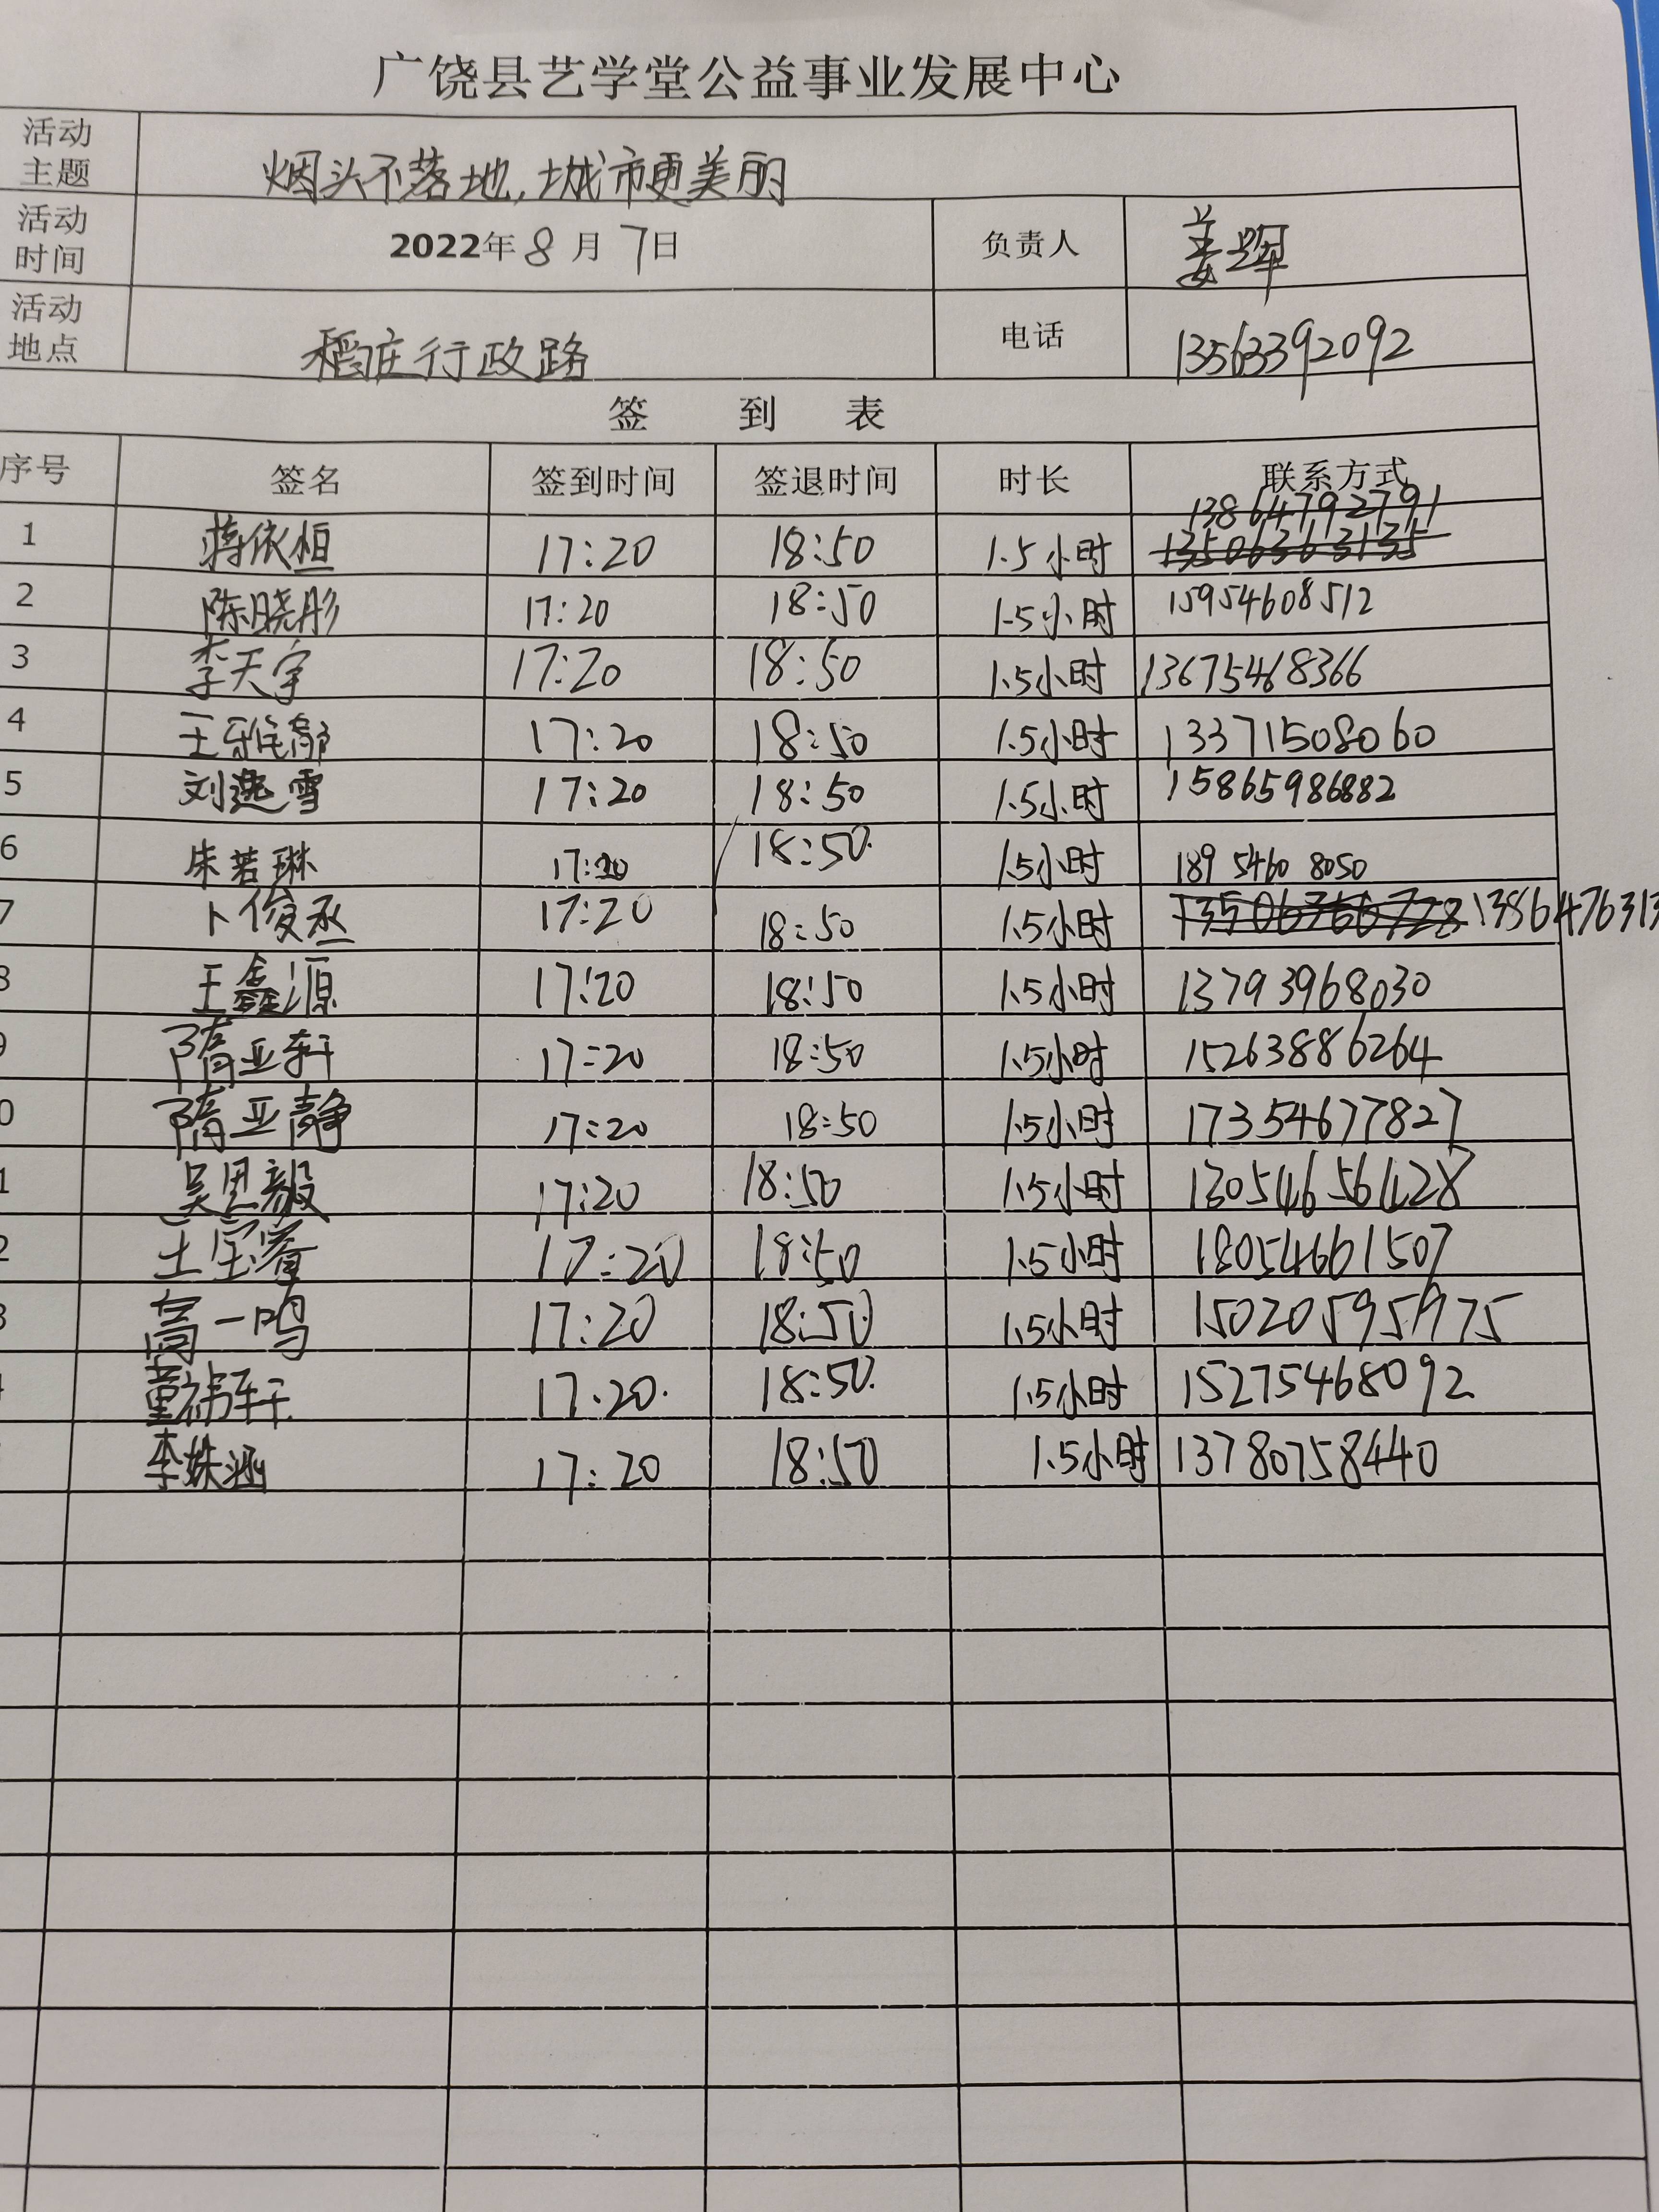 广饶县艺学堂公益事业发展中心
活动主题 烟头不落地,城市更美丽
活动时间 2022年8月7日 负责人 姜辉
活动地点 稻庄行政路 电话 13563392092
签 到 表
序号 签名 签到时间 签退时间 时长 联系方式
13864792791
1 蒋依恒 17:20 18:50 1.5小时 13506363135
2 陈晓彤 17:20 18:50 1.5小时 15954608512
3 李天宇 17:20 18:50 1.5小时 13675468366
4 王 17:20 18:50 1.5小时 13371508060
5 刘逸雪 17:20 18:50 1.5小时 15865986882
6 朱若琳 17:20 18:50 1.5小时 189 5460 8050
7 卜俊丞 17:20 18:50 1.5小时 13506366728 1386476313
8 王鑫源 17:20 18:50 1.5小时 13793968030
9 隋亚轩 17:20 18:50 1.5小时 15263886264
0 隋亚静 17:20 18:50 1.5小时 17354677827
1 吴思毅 17:20 18:50 1.5小时 13054656428
2 17:20 18:50 1.5小时 18054661507
3 高一鸣 17:20 18:50 1.5小时 15020595975
董祎轩 17:20 18:50 1.5小时 15275468092
李姝涵 17:20 18:50 1.5小时 13780758440